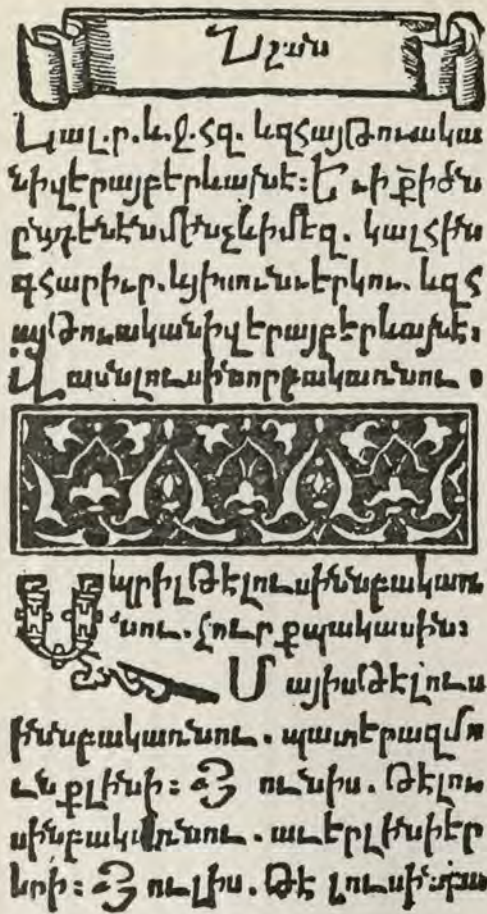 Նշան
Կալ.ր.և.ջ.հզ. և զհայթուակա
նիվերայբերևայնէ։ ԵՒ ի քիծն
մինչևիմեզ. կալհին
գհարիւր.և յիսունևերկու. և զհ
այթուականիվերայբերևայնէ։
Ամսալուսինորբակառնու ։
Ապրիլթէլուսիննբակառ
նու. ջուրքպակասին։
Մայիսթէլուս
իննբակառնու. պատերազմո
ւնքլինի։ Յունիս. թէլու
սինբակառնու. աւերլինիեր
կրի։ Յուլիս. թէ լուսինբա